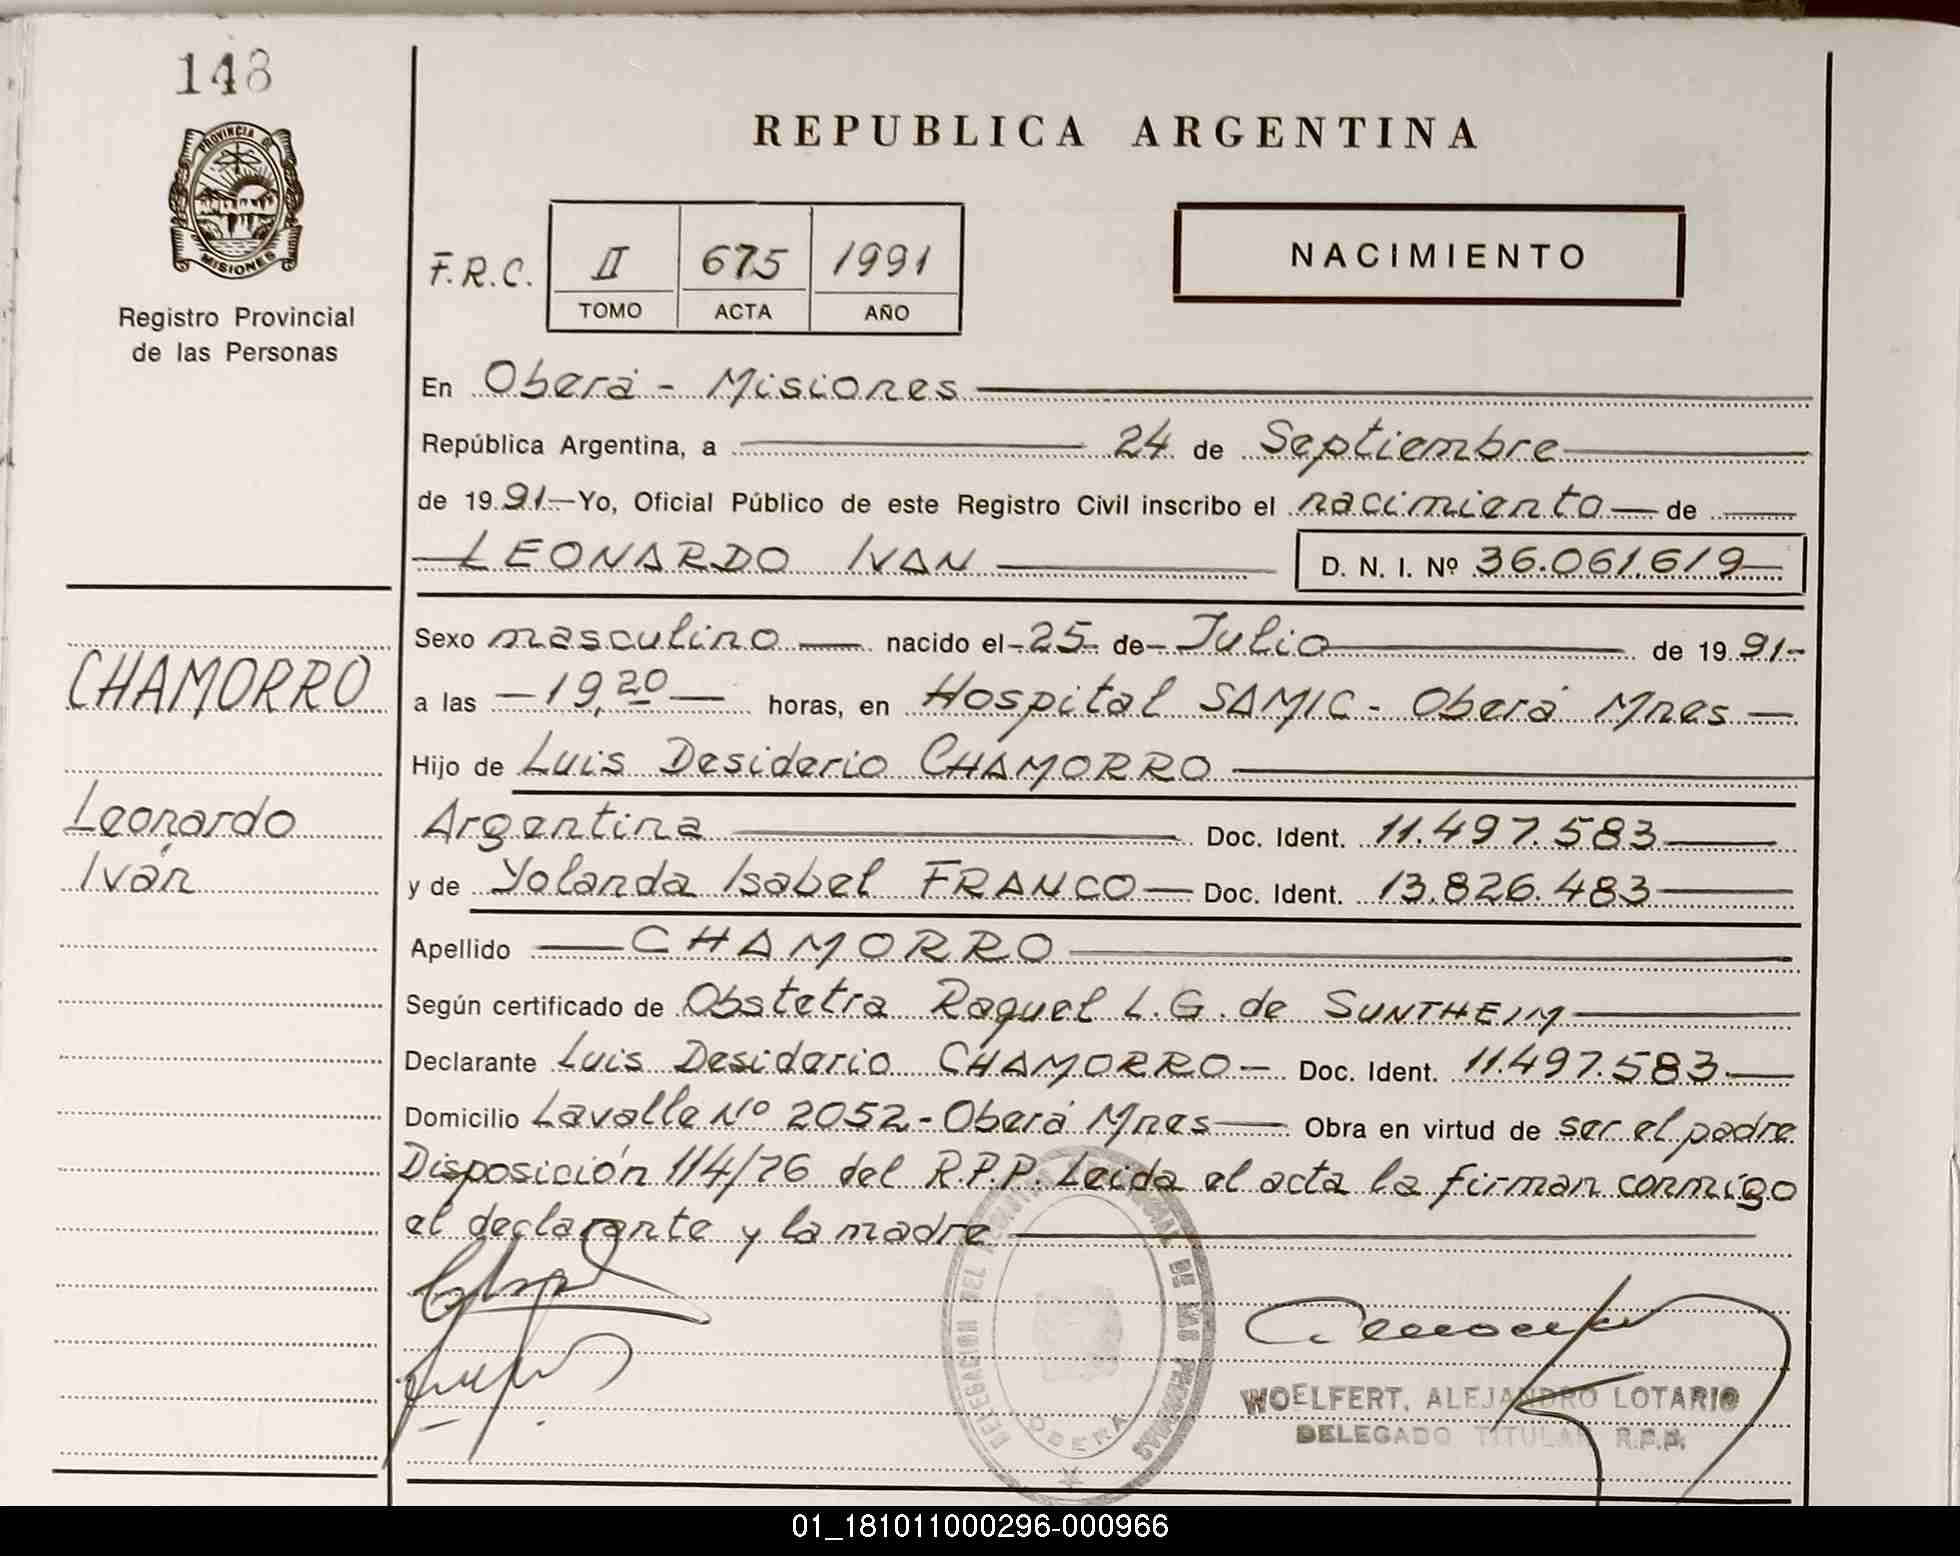 148
PROVINCIA DE
MISIONES
Registro Provincial
de las Personas
REPUBLICA ARGENTINA
F.R.C.
II 675 1991
TOMO ACTA AÑO
NACIMIENTO
En Oberá - Misiones
República Argentina, a 24 de Septiembre
de 1991 Yo, Oficial Público de este Registro Civil inscribo el nacimiento de
LEONARDO IVAN D. N. I. Nº 36.061.619
Sexo masculino nacido el 25 de Julio de 1991
a las 19,20 horas, en Hospital SAMIC - Oberá Mnes
Hijo de Luis Desiderio CHAMORRO
Argentina Doc. Ident. 11.497.583
y de Yolanda Isabel FRANCO Doc. Ident. 13.826.483
Apellido CHAMORRO
Según certificado de Obstetra Raquel L. G. de SUNTHEIM
Declarante Luis Desiderio CHAMORRO - Doc. Ident. 11.497.583
Domicilio Lavalle Nº 2052 - Oberá Mnes Obra en virtud de ser el padre
Disposición 114/76 del R.P.P. Leida el acta la firman conmigo
el declarante y la madre
CHAMORRO
Leonardo
Iván
DELEGACION DEL REGISTRO PROVINCIAL DE LAS PERSONAS
OBERA
WOELFERT, ALEJANDRO LOTARIO
DELEGADO TITULAR R.P.P.
01_181011000296-000966